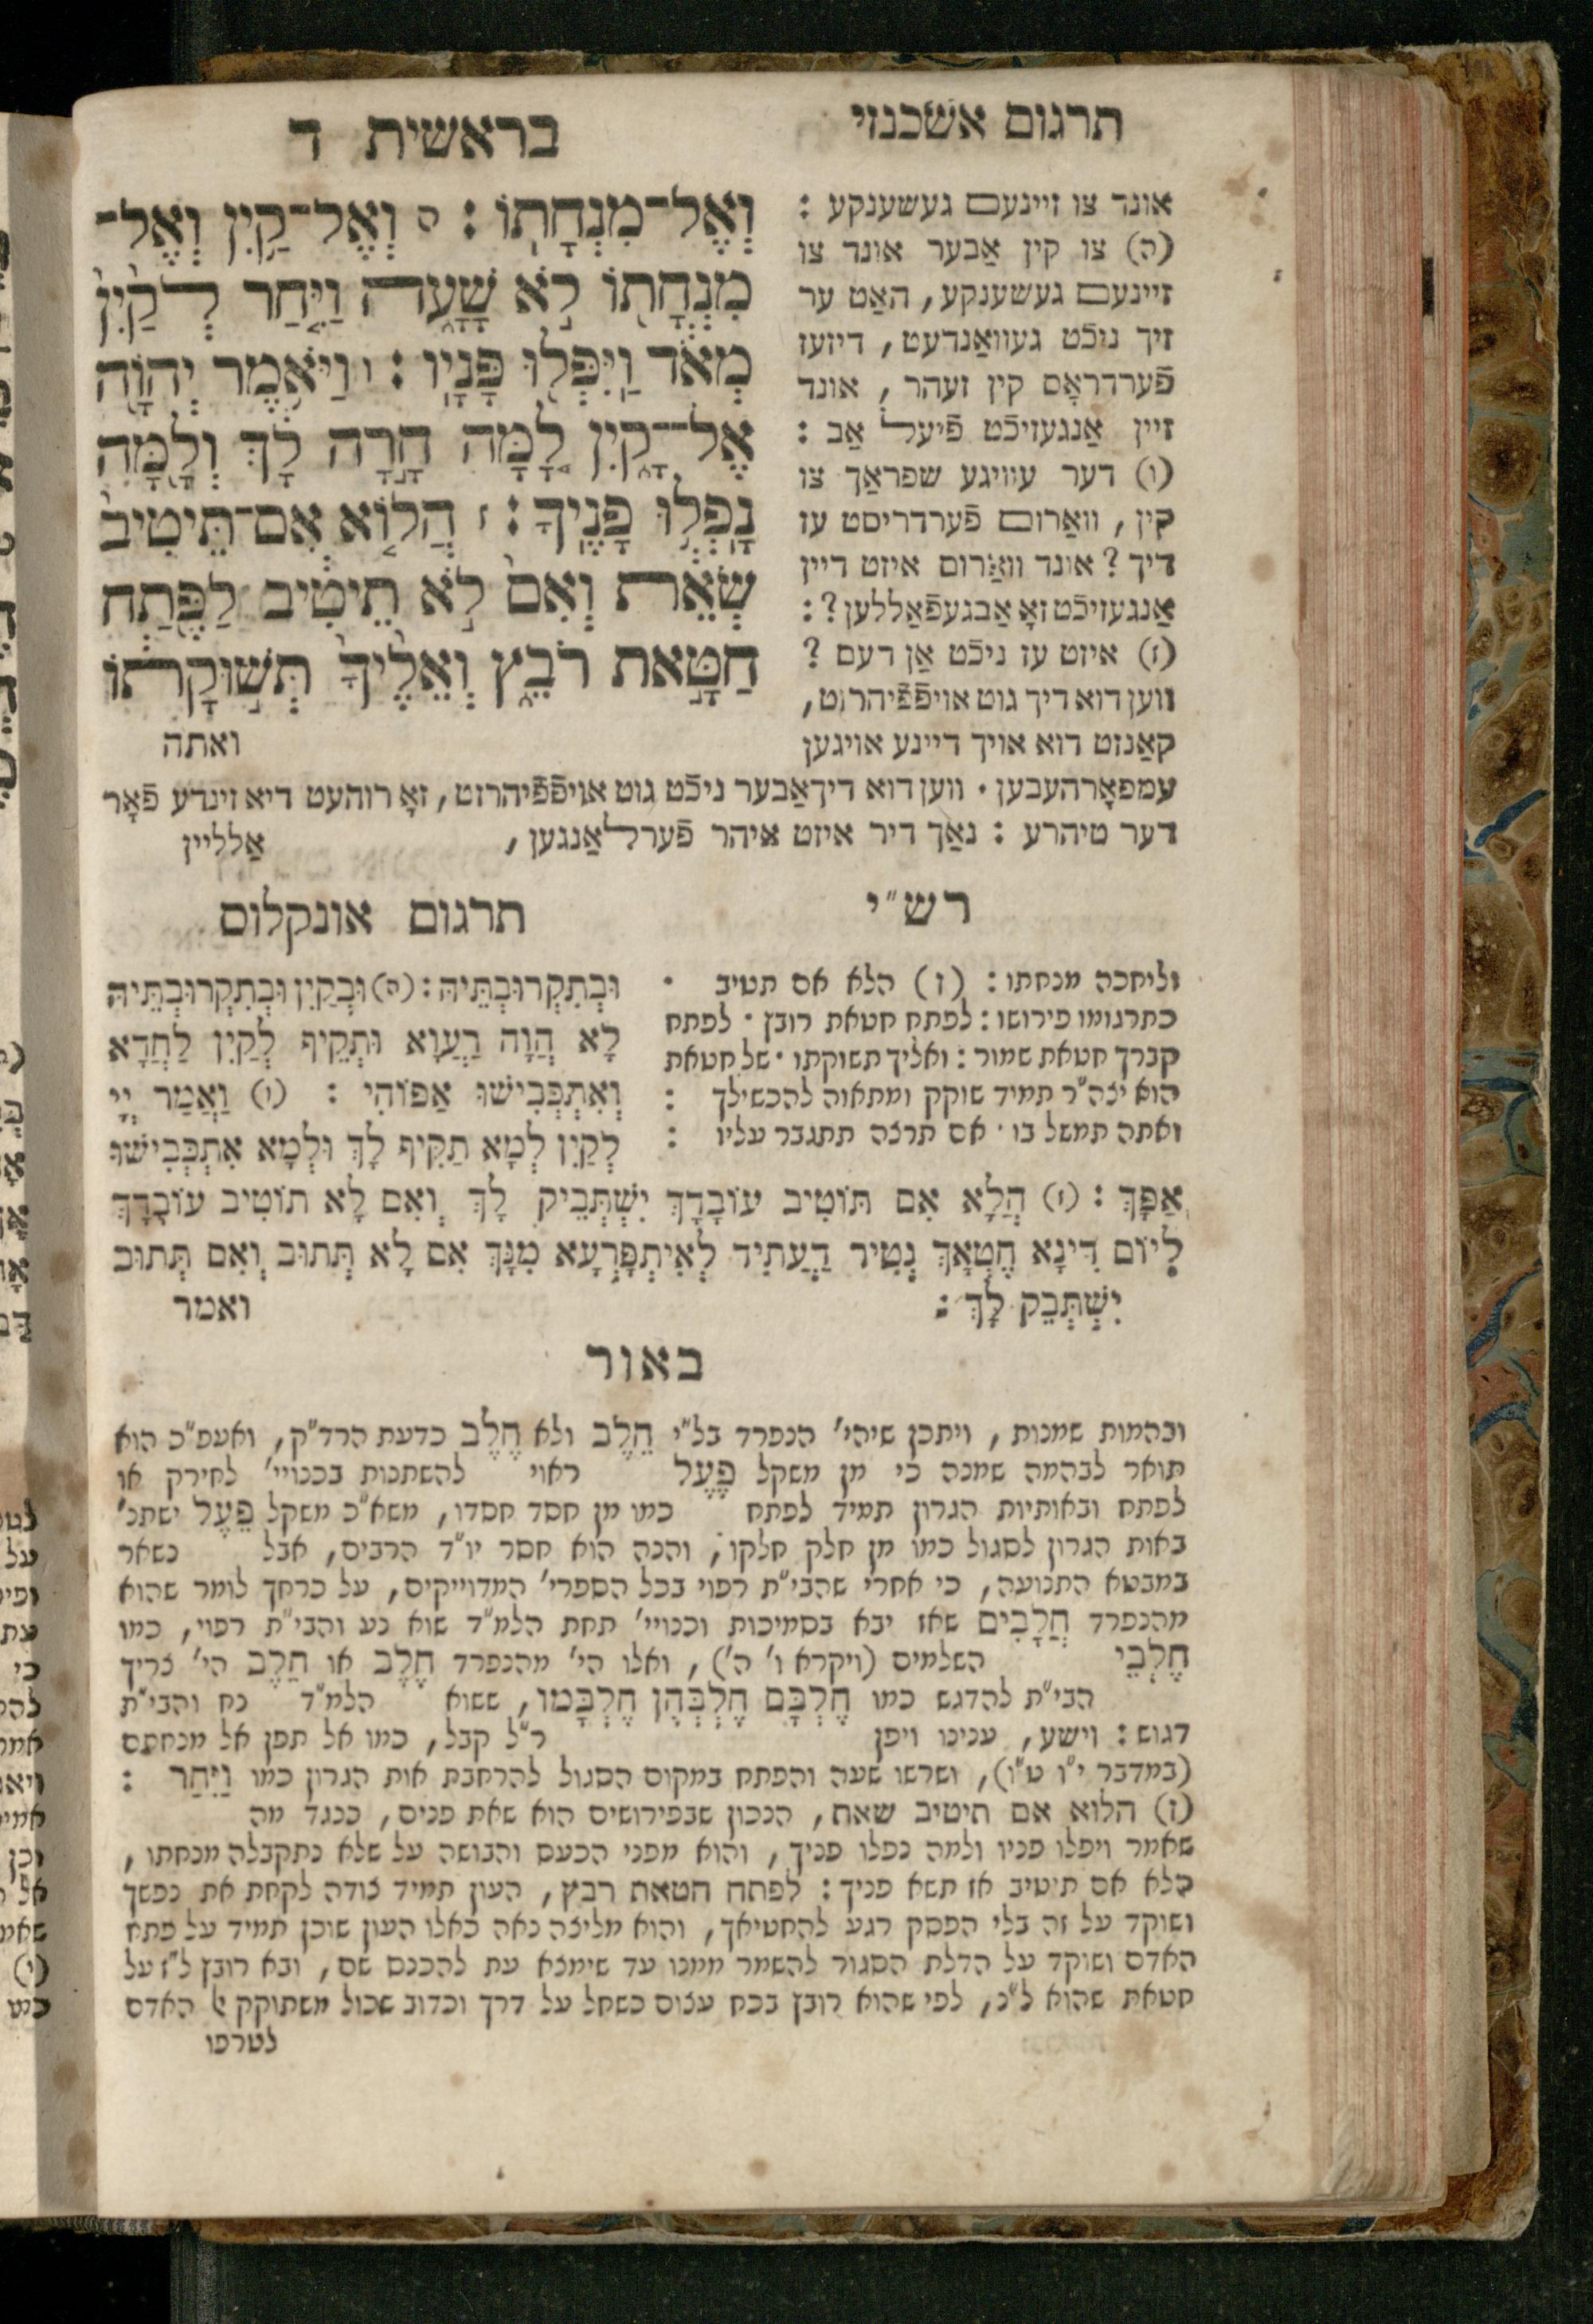 תרגום אשכנזי
בראשית ד
אונד צו זיינעם געשענקע :
(ה) צו קין אַבער אונד צו
זיינעם געשענקע, האַט ער
זיך ניכֿט געוואַנדעט, דיזעז
פֿערדראָס קין זעהר, אונד
זיין אַנגעזיכֿט פֿיעל אַב :
(ו) דער עוויגע שפראַך צו
קין, וואַרום פֿערדריסט עז
דיך? אונד וואַרום איזט דיין
אַנגעזיכֿט זאָ אַבגעפֿאַללען? :
(ז) איזט עז ניכֿט אַן דעם?
ווען דוא דיך גוט אויפֿפֿיהרזט,
קאַנזט דוא אויך דיינע אויגען
עמפאָרהעבען. ווען דוא דיך אַבער ניכֿט גוט אויפֿפֿיהרזט, זאָ רוהעט דיא זינדע פֿאָר
דער טיהרע : נאַך דיר איזט איהר פֿערלאַנגען,
אַלליין
וְאֶל־מִנְחָתֽוֹ : ה וְאֶל־קַ֥יִן וְאֶל־
מִנְחָת֖וֹ לֹ֣א שָׁעָ֑ה וַיִּ֤חַר לְקַ֙יִן֙
מְאֹ֔ד וַֽיִּפְּל֖וּ פָּנָֽיו : ו וַיֹּ֥אמֶר יְהוָ֖ה
אֶל־קָ֑יִן לָ֚מָּה חָ֣רָה לָ֔ךְ וְלָ֖מָּה
נָֽפְל֥וּ פָנֶֽיךָ : ז הֲל֤וֹא אִם־תֵּיטִיב֙
שְׂאֵ֔ת וְאִם֙ לֹ֣א תֵיטִ֔יב לַפֶּ֖תַח
חַטָּ֣את רֹבֵ֑ץ וְאֵלֶ֙יךָ֙ תְּשׁ֣וּקָת֔וֹ
ואתה
רש״י
וליחכה מנחתו : (ז) הלא אם תטיב •
כתרגומו פירושו : לפתח חטאת רובץ • לפתח
קברך חטאת שמור : ואליך תשוקתו • של חטאת
הוא יצה״ר תמיד שוקק ומתאוה להכשילך :
ואתה תמשל בו • אם תרצה תתגבר עליו :
תרגום אונקלוס
וּבְתִקְרוּבְתֵּיהּ : (ה) וּבְקַיִן וּבְתִקְרוּבְתֵּיהּ
לָא הֲוָה רַעֲוָא וּתְקֵיף לְקַיִן לַחֲדָא
וְאִתְכְּבִישׁוּ אַפּוֹהִי : (ו) וַאֲמַר יְיָ
לְקַיִן לְמָא תַקִיף לָךְ וּלְמָא אִתְכְּבִישׁוּ
אַפָּךְ : (ז) הֲלָא אִם תּוֹטִיב עוֹבָדָךְ יִשְׁתְּבֵיק לָךְ וְאִם לָא תוֹטִיב עוֹבָדָךְ
לְיוֹם דִּינָא חֶטְאָךְ נְטִיר דַעֲתִיד לְאִיתְפָּרְעָא מִנָּךְ אִם לָא תְּתוּב וְאִם תְּתוּב
יִשְׁתְּבֵק לָךְ :
ואמר
באור
ובהמות שמנות, ויתכן שיהי׳ הנפרד בל״י חֵלֶב ולא חֶלֶב כדעת הרד״ק, ואעפ״כ הוא
תואר לבהמה שמנה כי מן משקל פֶעֶל ראוי להשתנות בכנויי׳ לחירק או
לפתח ובאותיות הגרון תמיד לפתח כמו מן חסד חסדו, משא״כ משקל פֵעֶל ישתנ׳
באות הגרון לסגול כמו מן חלק חלקו ; והנה הוא חסר יו״ד הרבים, אבל נשאר
במבטא התנועה, כי אחרי שהבי״ת רפוי בכל הספרי׳ המדוייקים, על כרחך לומר שהוא
מהנפרד חֲלָבִים שאז יבא בסמיכות וכנויי׳ תחת הלמ״ד שוא נע והבי״ת רפוי, כמו
חֶלְבֵי השלמים (ויקרא ו׳ ה׳), ואלו הי׳ מהנפרד חֶלֶב או חֵלֶב הי׳ צריך
הבי״ת להדגש כמו חֶלְבָּם חֶלְבְּהֶן חֶלְבָּמוֹ, ששוא הלמ״ד נח והבי״ת
דגוש : וישע, ענינו ויפן ר״ל קבל, כמו אל תפן אל מנחתם
(במדבר י״ו ט״ו), ושרשו שעה והפתח במקום הסגול להרחבת אות הגרון כמו וַיִּחַר :
(ז) הלוא אם תיטיב שאת, הנכון שבפירושים הוא שאת פנים, כנגד מה
שאמר ויפלו פניו ולמה נפלו פניך, והוא מפני הכעס והבושה על שלא נתקבלה מנחתו,
הלא אם תיטיב אז תשא פניך : לפתח חטאת רבץ, העון תמיד צודה לקחת את נפשך
ושוקד על זה בלי הפסק רגע להחטיאך, והוא מליצה נאה כאלו העון שוכן תמיד על פתח
האדם ושוקד על הדלת הסגור להשמר ממנו עד שימצא עת להכנס שם, ובא רובץ ל״ז על
חטאת שהוא ל״נ, לפי שהוא רובץ בכח עצום כשחל על דרך וכדוב שכול משתוקק אל האדם
לטרפו